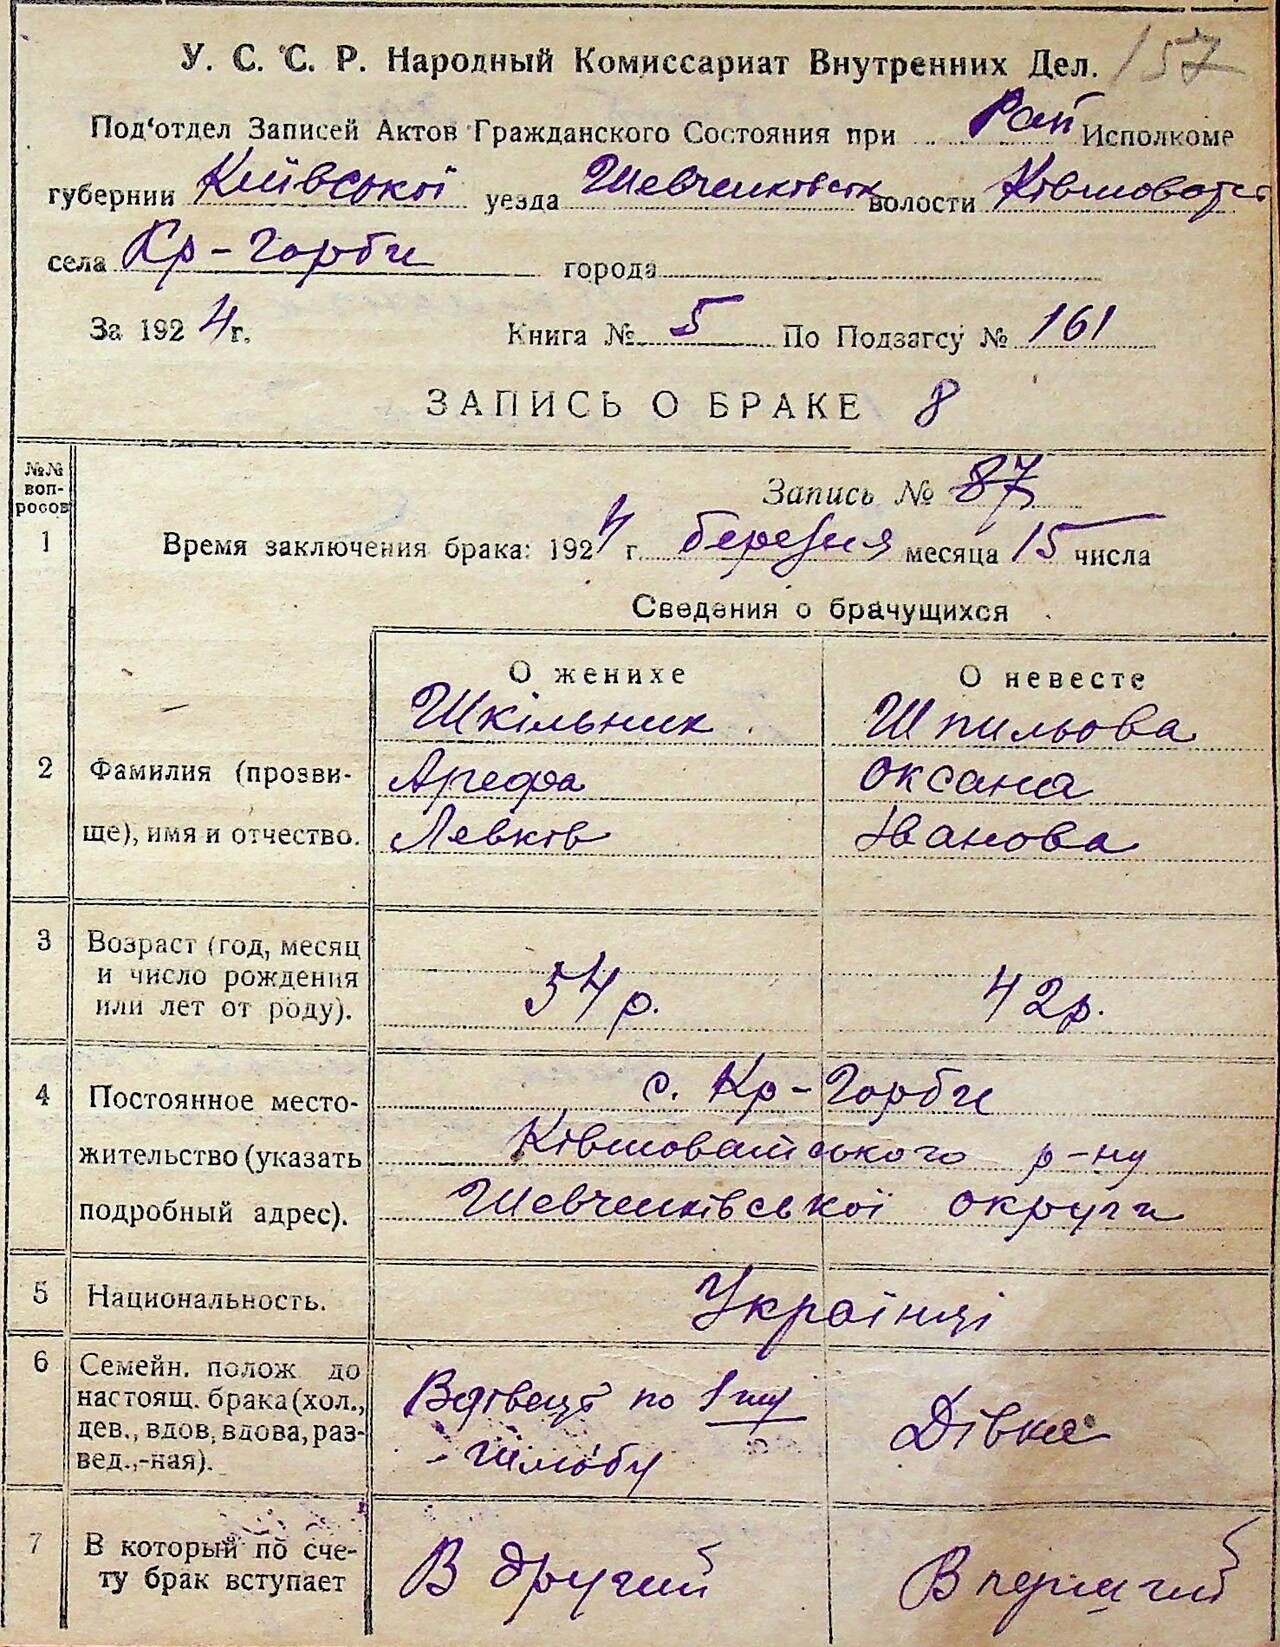 157
У. С. С. Р. Народный Комиссариат Внутренних Дел.
Под'отдел Записей Актов Гражданского Состояния при Рай Исполкоме
губернии Київської уезда Шевченківськ волости
села Кр-Горби города
За 1924 г. Книга № 5 По Подзагсу № 161
ЗАПИСЬ О БРАКЕ 8
№№ воп-росов
Запись № 87
1 Время заключения брака: 1924 г. березня месяца 15 числа
Сведения о брачущихся
О женихе О невесте
Шкільник Шпильова
2 Фамилия (прозви- Арефа Оксана
ще), имя и отчество. Левків Іванова
3 Возраст (год, месяц
и число рождения 54 р. 42 р.
или лет от роду).
4 Постоянное место- с. Кр-Горби
жительство (указать Ківшоватського р-ну
подробный адрес). Шевченківської округи
5 Национальность. Українці
6 Семейн. полож до
настоящ. брака (хол., Вдівець по 1му Дівка
дев., вдов, вдова, раз- шлюбу
вед.,-ная).
7 В который по сче- В другий В перший
ту брак вступает